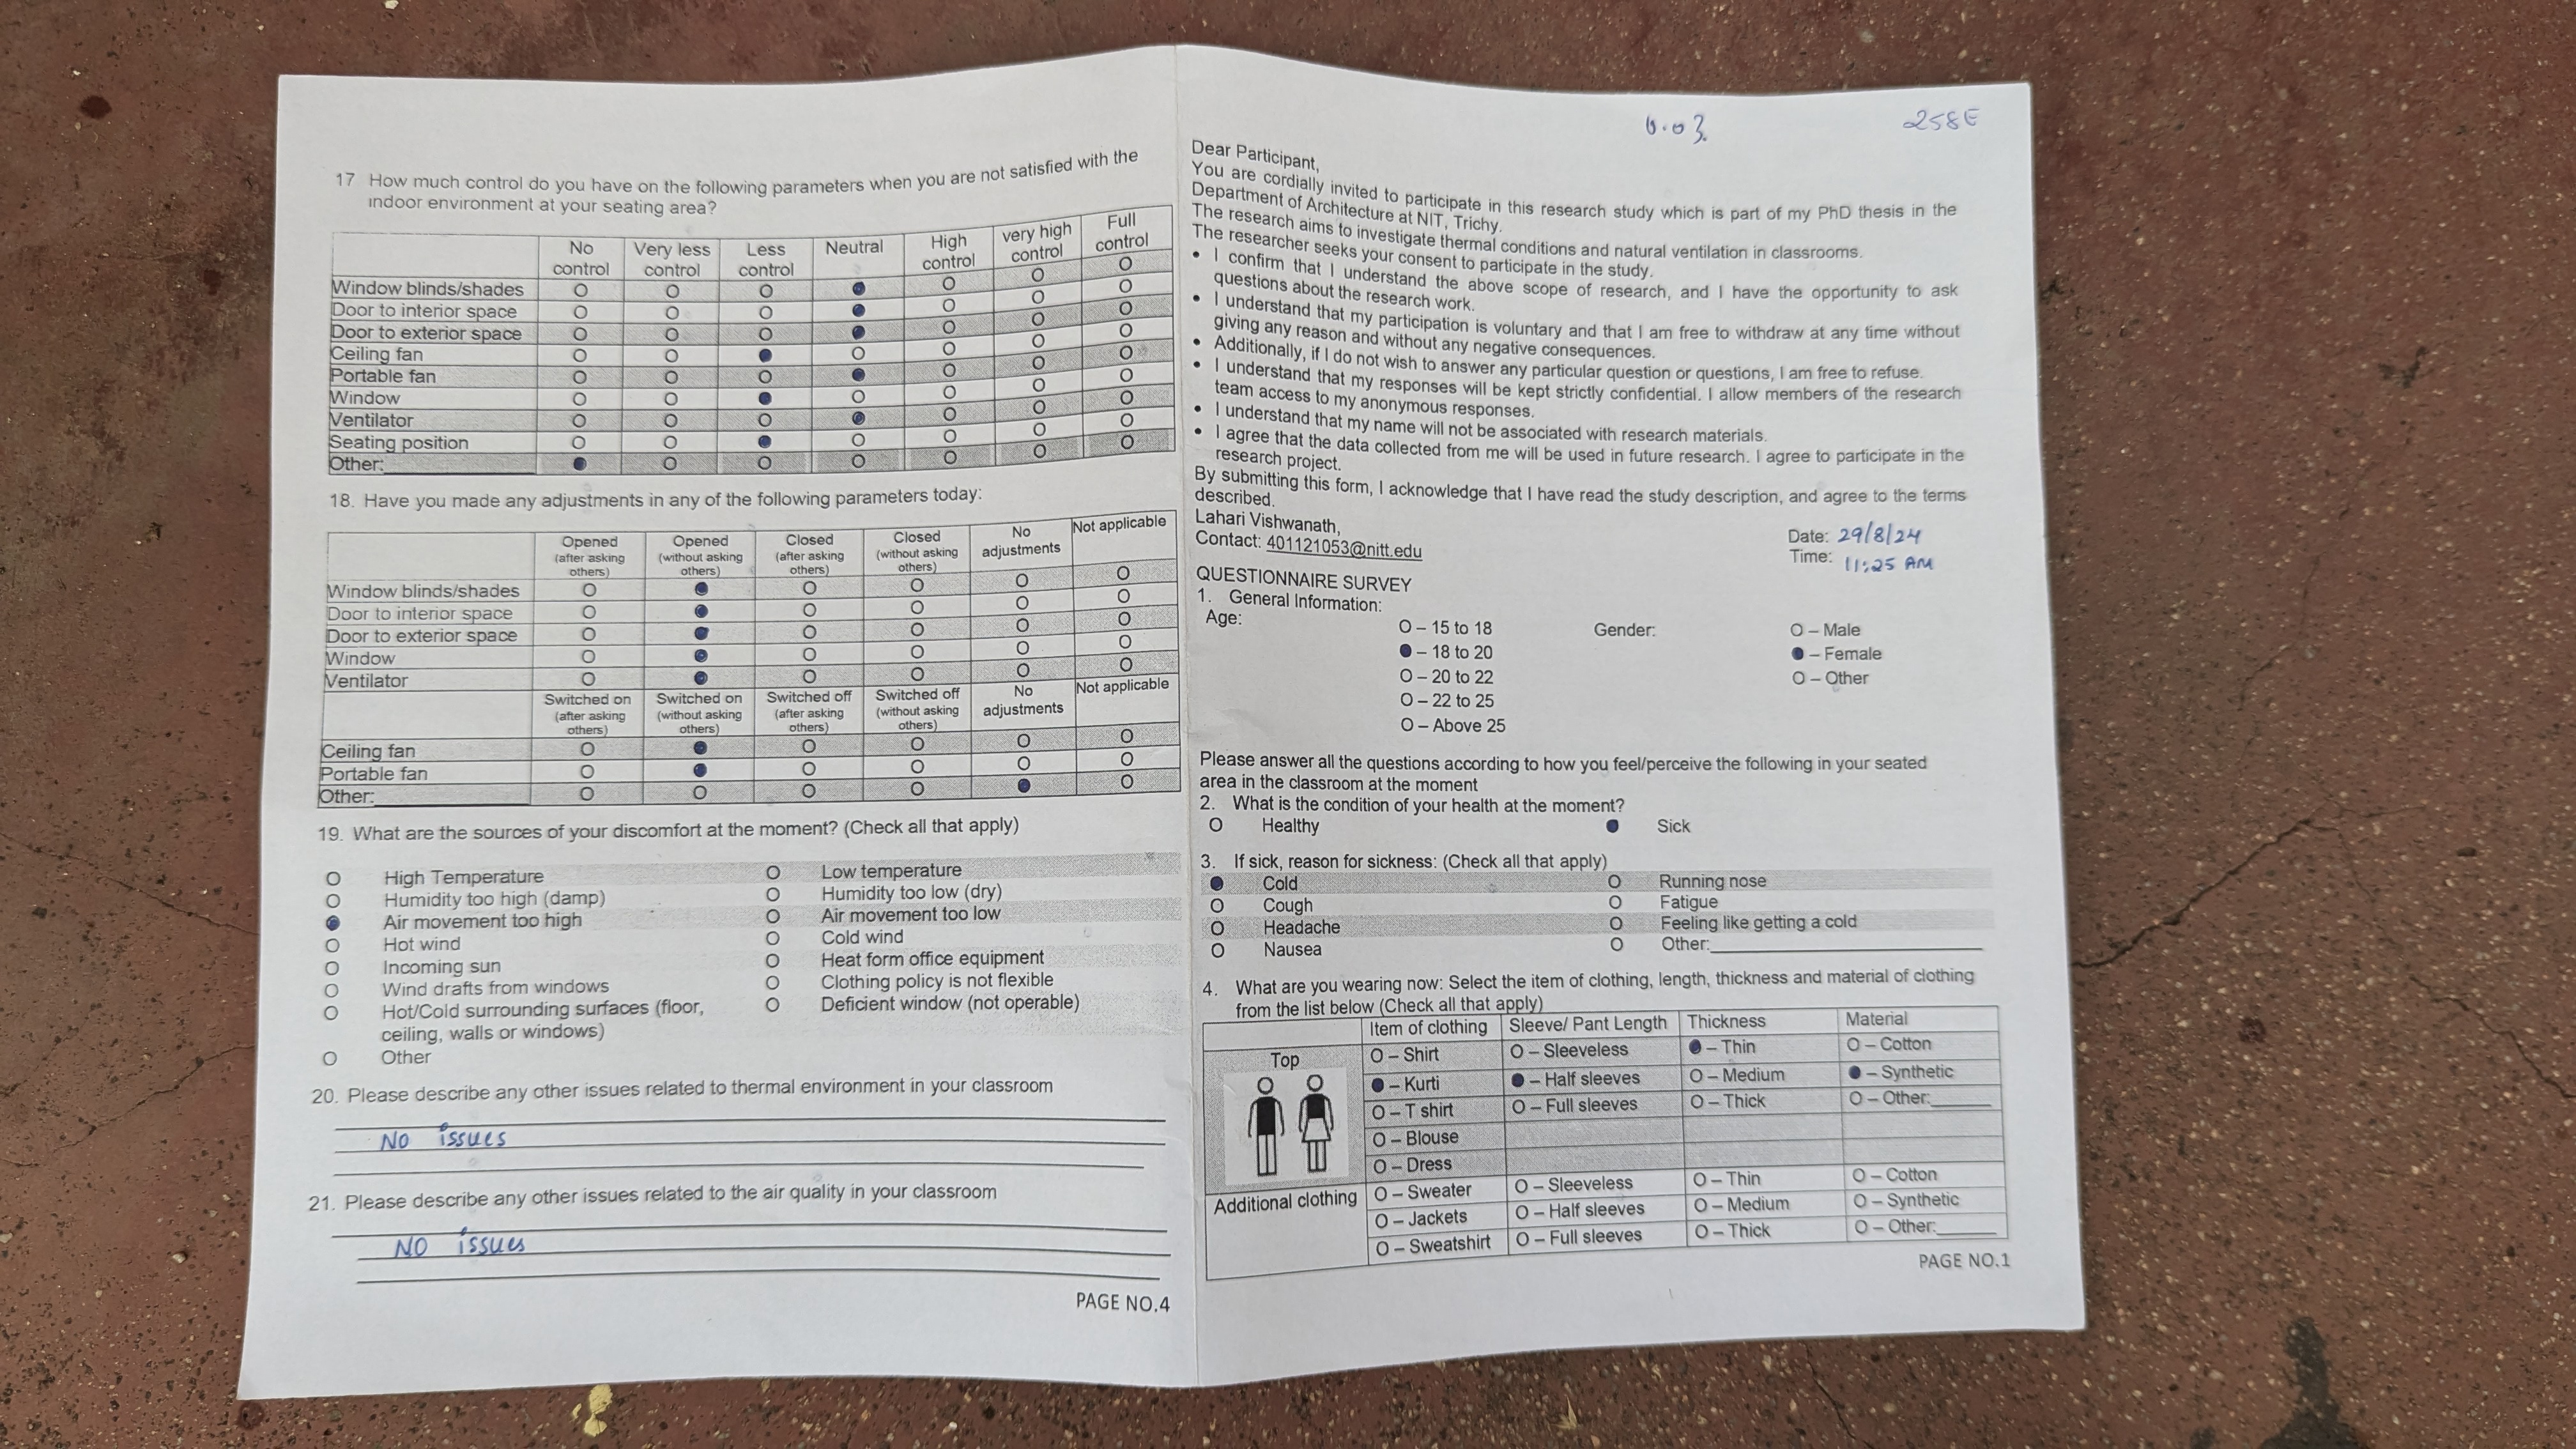 17 How much control do you have on the following parameters when you are not satisfied with the
indoor environment at your seating area?
No control Very less control Less control Neutral High control very high control Full control
Window blinds/shades O O O ● O O O
Door to interior space O O O ● O O O
Door to exterior space O O O ● O O O
Ceiling fan O O ● O O O O
Portable fan O O O ● O O O
Window O O ● O O O O
Ventilator O O O ● O O O
Seating position O O ● O O O O
Other: ● O O O O O O
18. Have you made any adjustments in any of the following parameters today:
Opened (after asking others) Opened (without asking others) Closed (after asking others) Closed (without asking others) No adjustments Not applicable
Window blinds/shades O ● O O O O
Door to interior space O ● O O O O
Door to exterior space O ● O O O O
Window O ● O O O O
Ventilator O ● O O O O
Switched on (after asking others) Switched on (without asking others) Switched off (after asking others) Switched off (without asking others) No adjustments Not applicable
Ceiling fan O ● O O O O
Portable fan O ● O O O O
Other: O O O O ● O
19. What are the sources of your discomfort at the moment? (Check all that apply)
O High Temperature O Low temperature
O Humidity too high (damp) O Humidity too low (dry)
● Air movement too high O Air movement too low
O Hot wind O Cold wind
O Incoming sun O Heat form office equipment
O Wind drafts from windows O Clothing policy is not flexible
O Hot/Cold surrounding surfaces (floor, O Deficient window (not operable)
ceiling, walls or windows)
O Other
20. Please describe any other issues related to thermal environment in your classroom
NO issues
21. Please describe any other issues related to the air quality in your classroom
NO issues
PAGE NO.4
0.03. 258E
Dear Participant,
You are cordially invited to participate in this research study which is part of my PhD thesis in the
Department of Architecture at NIT, Trichy.
The research aims to investigate thermal conditions and natural ventilation in classrooms.
The researcher seeks your consent to participate in the study.
• I confirm that I understand the above scope of research, and I have the opportunity to ask
questions about the research work.
• I understand that my participation is voluntary and that I am free to withdraw at any time without
giving any reason and without any negative consequences.
• Additionally, if I do not wish to answer any particular question or questions, I am free to refuse.
• I understand that my responses will be kept strictly confidential. I allow members of the research
team access to my anonymous responses.
• I understand that my name will not be associated with research materials.
• I agree that the data collected from me will be used in future research. I agree to participate in the
research project.
By submitting this form, I acknowledge that I have read the study description, and agree to the terms
described.
Lahari Vishwanath,
Contact: 401121053@nitt.edu
Date: 29/8/24
Time: 11:25 AM
QUESTIONNAIRE SURVEY
1. General Information:
Age: O – 15 to 18 Gender: O – Male
● – 18 to 20 ● – Female
O – 20 to 22 O – Other
O – 22 to 25
O – Above 25
Please answer all the questions according to how you feel/perceive the following in your seated
area in the classroom at the moment
2. What is the condition of your health at the moment?
O Healthy ● Sick
3. If sick, reason for sickness: (Check all that apply)
● Cold O Running nose
O Cough O Fatigue
O Headache O Feeling like getting a cold
O Nausea O Other:
4. What are you wearing now: Select the item of clothing, length, thickness and material of clothing
from the list below (Check all that apply)
Item of clothing Sleeve/ Pant Length Thickness Material
Top O – Shirt O – Sleeveless ● – Thin O – Cotton
● – Kurti ● – Half sleeves O – Medium ● – Synthetic
O – T shirt O – Full sleeves O – Thick O – Other:
O – Blouse
O – Dress
Additional clothing O – Sweater O – Sleeveless O – Thin O – Cotton
O – Jackets O – Half sleeves O – Medium O – Synthetic
O – Sweatshirt O – Full sleeves O – Thick O – Other:
PAGE NO.1